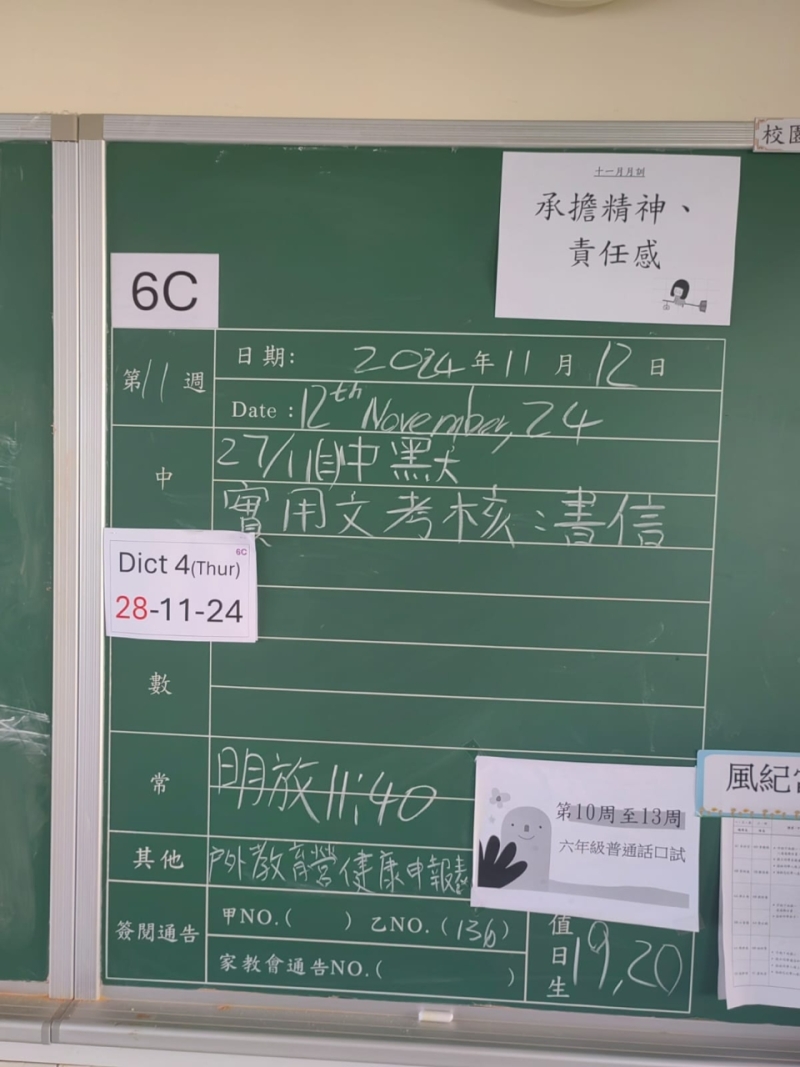 校園
十一月月訓
承擔精神、
責任感
6C
第11週
日期： 2024年11月12日
Date : 12th November, 24
中
27/11(三)中默
實用文考核：書信
6C
Dict 4(Thur)
28-11-24
數
常
明放11:40
第10周至13周
六年級普通話口試
風紀
其他
戶外教育營健康申報表
簽閱通告
甲NO.( ) 乙NO.(136)
家教會通告NO.( )
值日生
19,20